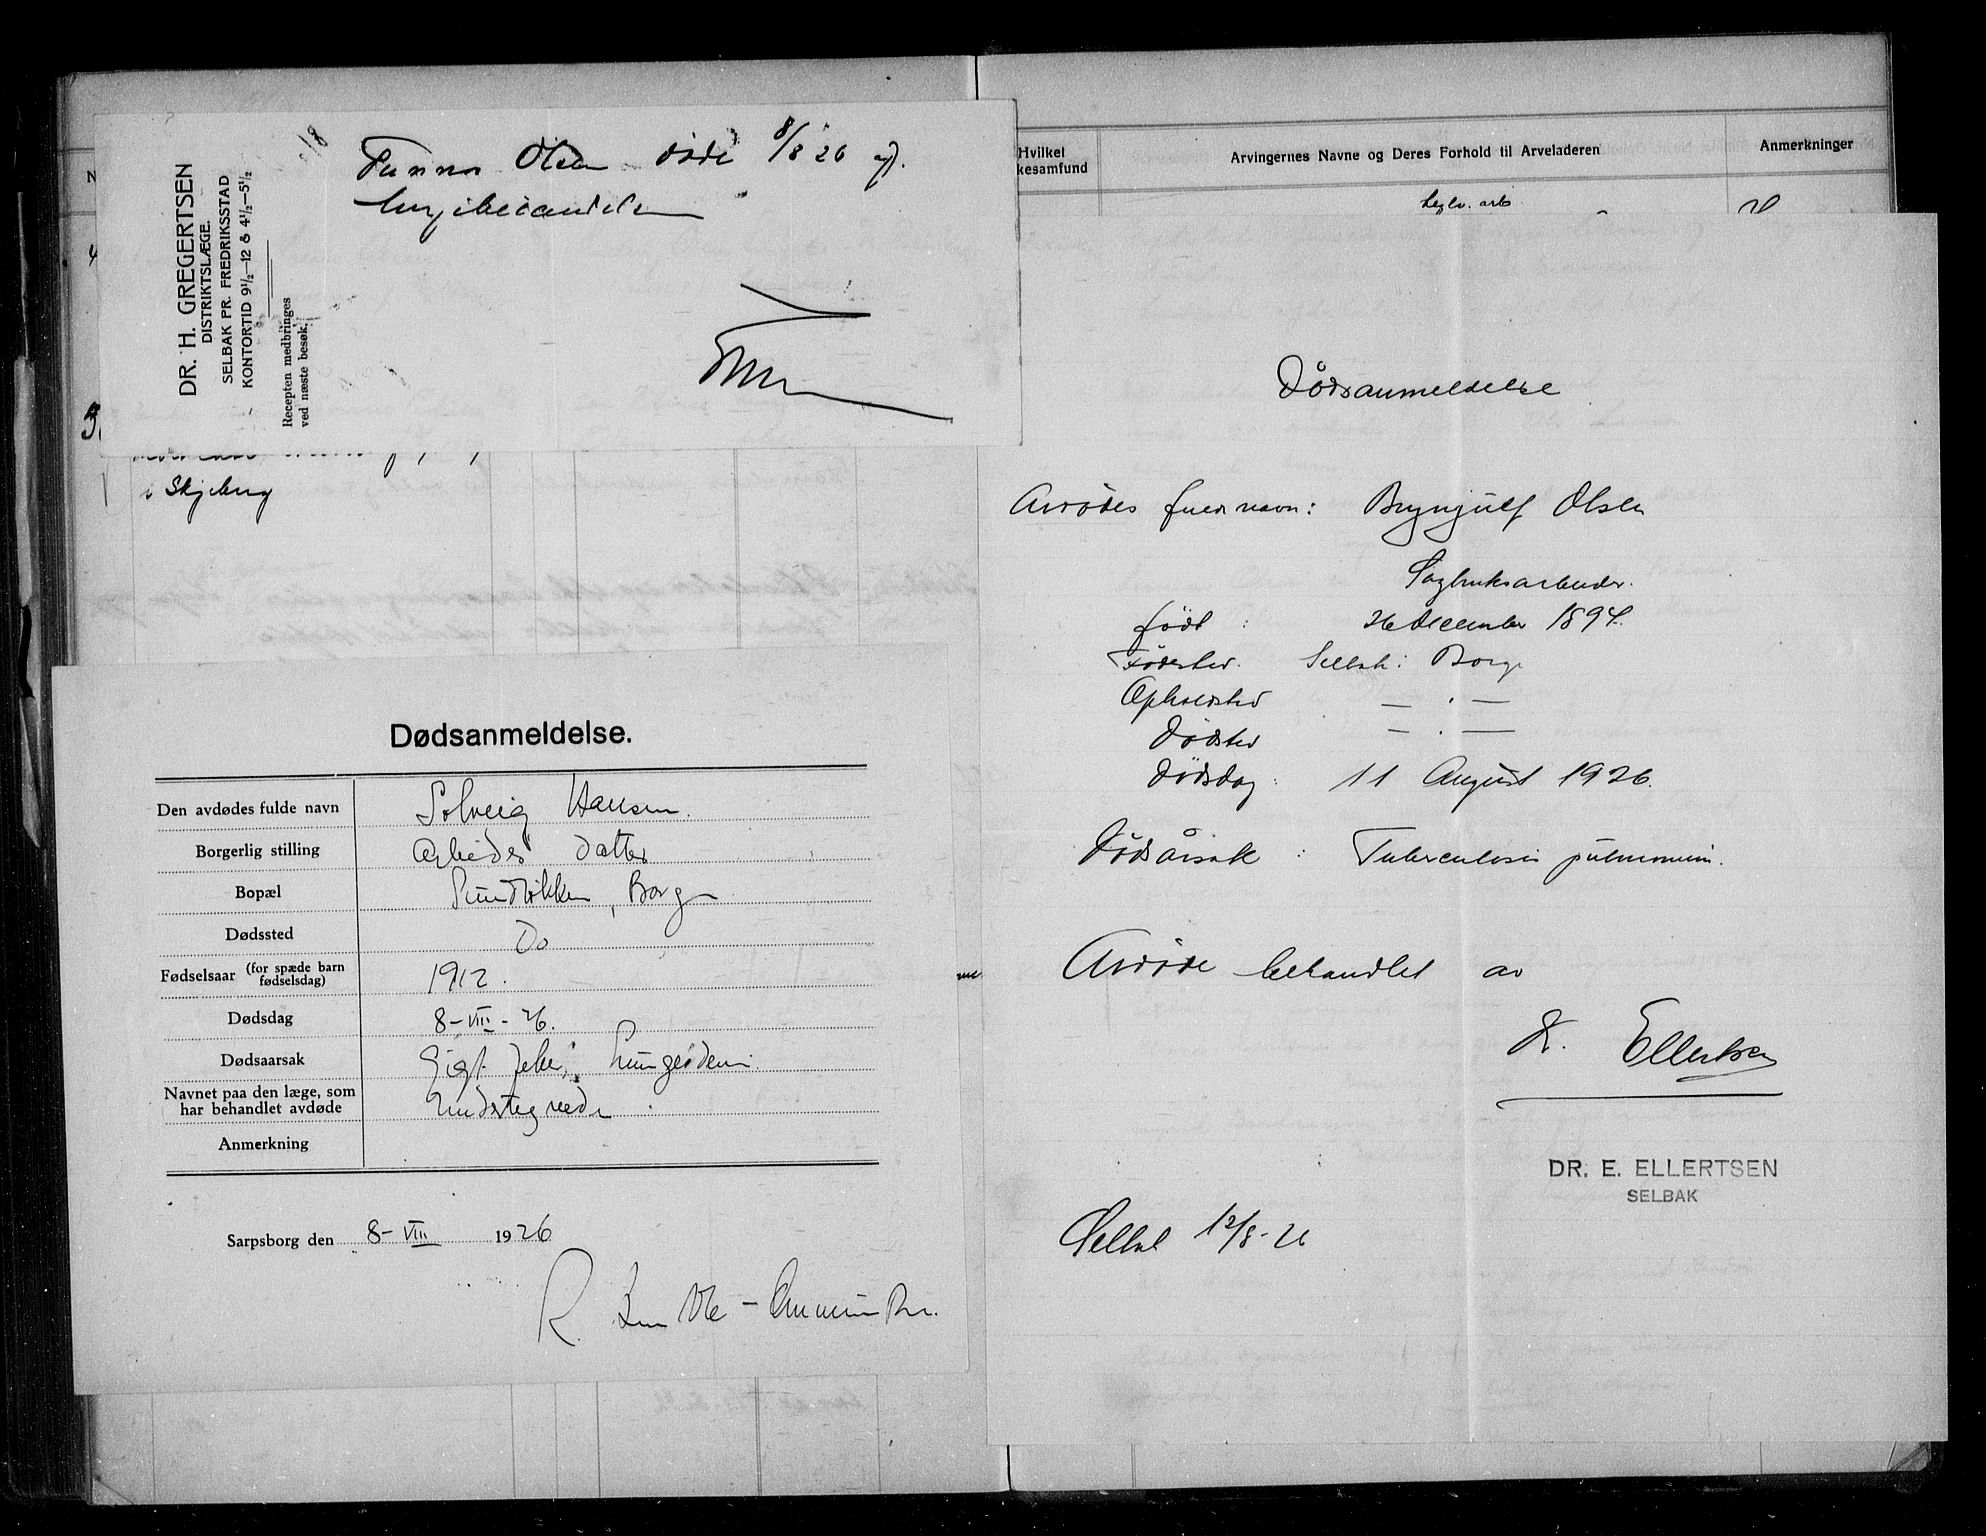 DR. H. GREGERTSEN
DISTRIKTSLÆGE.
SELBAK PR. FREDRIKSSTAD
KONTORTID 9½—12 & 4½—5½
Recepten medbringes
ved næste besøk.
Olsen døde 8/8 26 af
i Skjeberg
Hvilket
kesamfund
Arvingernes Navne og Deres Forhold til Arveladeren
Anmerkninger
Dødsanmeldelse.
Den avdødes fulde navn Solveig Hansen.
Borgerlig stilling Arbeider datter
Bopæl Sundløkken, Borge
Dødssted Do
Fødselsaar (for spæde barn fødselsdag) 1912.
Dødsdag 8-VIII-26.
Dødsaarsak Gigt feber, Lungeødem.
Navnet paa den læge, som
har behandlet avdøde Undertegnede
Anmerkning
Sarpsborg den 8-VIII 1926
Dødsanmeldelse
Avdødes fulde navn: Brynjulf Olsen
Sagbruksarbeider.
født : 26 december 1894.
Fødested. Selbak i Borge
Opholdsted — · —
Dødsted — · —
Dødsdag : 11 August 1926.
Dødsårsak : Tuberculosis pulmonum.
Avdøde behandlet av
Dr. Ellertsen
DR. E. ELLERTSEN
SELBAK
Selbak 12/8-26